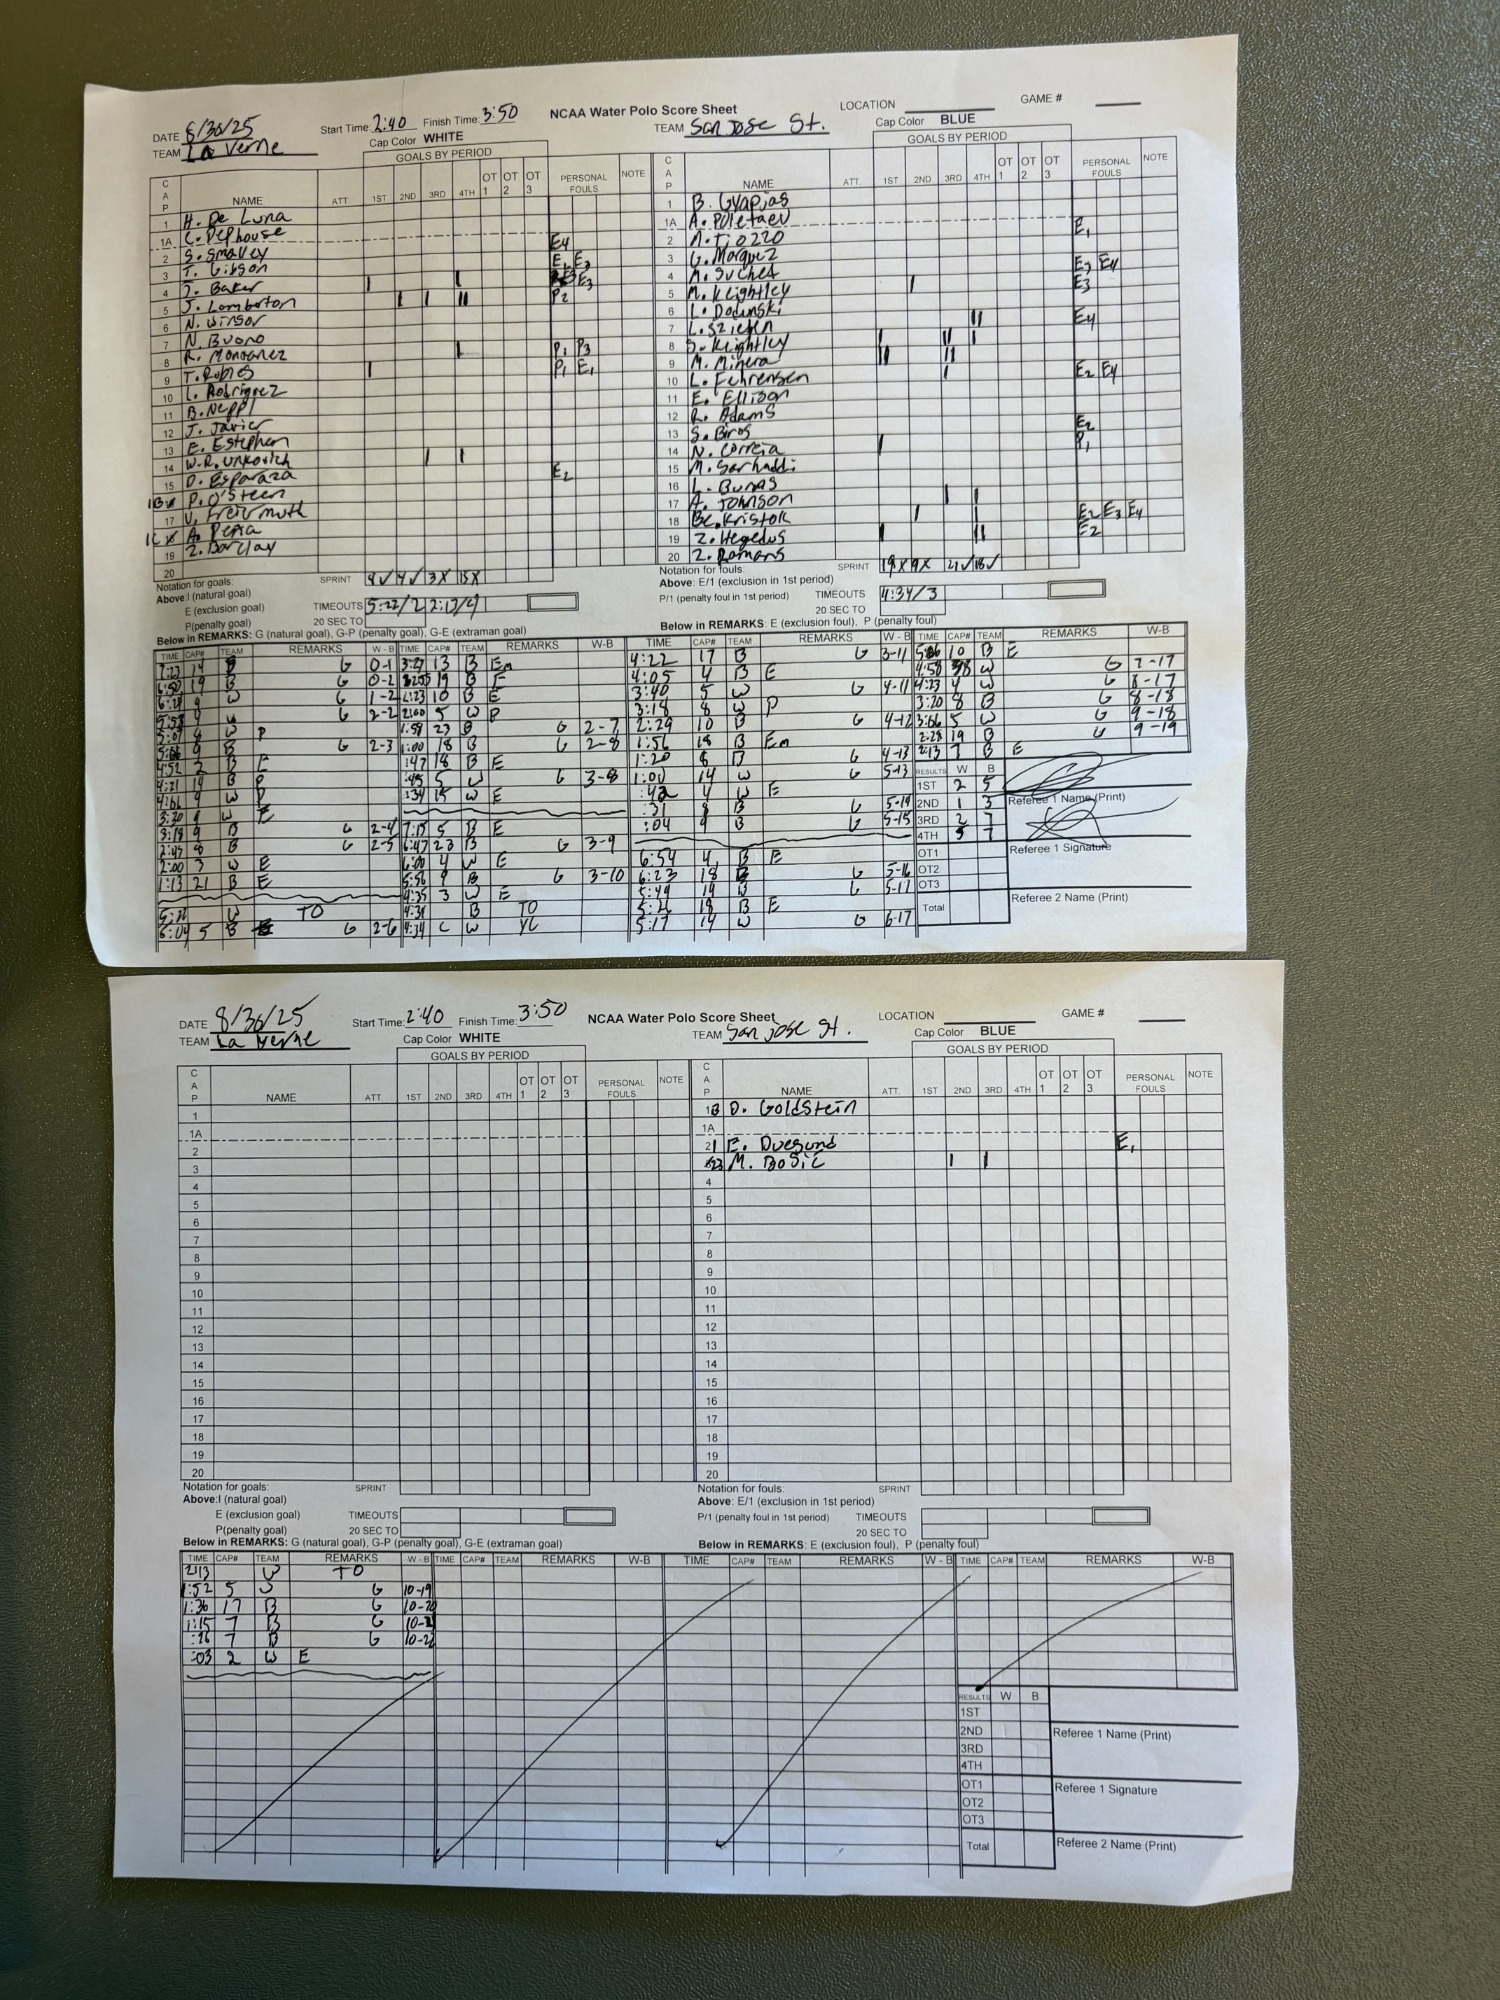 NCAA Water Polo Score Sheet
DATE 8/30/25 Start Time: 2:40 Finish Time: 3:50 LOCATION GAME #
TEAM La Verne Cap Color WHITE TEAM San Jose St. Cap Color BLUE
GOALS BY PERIOD GOALS BY PERIOD
CAP NAME ATT. 1ST 2ND 3RD 4TH OT 1 OT 2 OT 3 PERSONAL FOULS NOTE CAP NAME ATT. 1ST 2ND 3RD 4TH OT 1 OT 2 OT 3 PERSONAL FOULS NOTE
1 H. De Luna
1A C. Dephouse
2 S. Smalley E4
3 T. Gibson E1 E2
4 J. Baker I I E3
5 J. Lamberton I I II P2
6 N. Winsor
7 N. Buono
8 R. Monganez I P1 P3
9 T. Robles I P1 E1
10 L. Rodriguez
11 B. Neppl
12 J. Javier
13 E. Estephen
14 W.R. Unkovich I I
15 D. Esparaza E2
1B P. O'Steen
17 V. Freirmuth
1C A. Pena
19 Z. Barclay
20
1
1A A. Poletaev
2 M. Tiozzo E1
3 G. Marquez
4 M. Suchet E3 E4
5 M. Keightley I E3
6 L. Dodunski
7 L. Szieben II E4
8 S. Keightley I II I
9 M. Minera II II
10 L. Fehrensen I E2 E4
11 E. Ellison
12 R. Adams
13 S. Biros E2
14 N. Correia I P1
15 M. Sarhaddi
16 L. Bunas
17 A. Johnson I I
18 Bc. Kristok I I E2 E3 E4
19 Z. Hegedus I II E2
20 Z. Romans
Notation for goals: SPRINT
Above: I (natural goal)
E (exclusion goal) TIMEOUTS 5:22/2 2:13/4
P(penalty goal) 20 SEC TO
Notation for fouls: SPRINT
Above: E/1 (exclusion in 1st period)
P/1 (penalty foul in 1st period) TIMEOUTS 4:34/3
20 SEC TO
Below in REMARKS: G (natural goal), G-P (penalty goal), G-E (extraman goal) Below in REMARKS: E (exclusion foul), P (penalty foul)
TIME CAP# TEAM REMARKS W - B
7:23 14 B G 0-1
6:50 19 B G 0-2
W G 1-2
W G 2-2
W P
9 B G 2-3
4:52 2 B E
4:21 14 B P
9 W P
3:20 W E
3:19 9 B G 2-4
2:45 8 B G 2-5
2:00 3 W E
1:13 21 B E
W TO
6:04 5 B G 2-6
TIME CAP# TEAM REMARKS W-B
3:27 13 B Em
19 B E
2:23 10 B E
2:00 5 W P
1:59 23 B G 2-7
1:00 18 B G 2-8
:47 18 B E
:45 5 W G 3-8
:34 15 W E
7:15 5 B E
6:47 23 B G 3-9
6:00 4 W E
5:56 9 B G 3-10
4:35 3 W E
4:34 B TO
4:34 C W YC
TIME CAP# TEAM REMARKS W - B
4:22 17 B G 3-11
4:05 4 B E
3:40 5 W G 4-11
3:18 8 W P
2:29 10 B G 4-12
1:56 18 B Em
1:20 8 B G 4-13
1:00 14 W G 5-13
:42 4 W E
:31 8 B G 5-14
:04 9 B G 5-15
6:54 4 B E
6:23 18 B G 5-16
5:49 19 B G 5-17
5:21 18 B E
5:17 14 W G 6-17
TIME CAP# TEAM REMARKS W-B
5:06 10 B E
4:58 8 W G 7-17
4:23 4 W G 8-17
3:20 8 B G 8-18
3:06 5 W G 9-18
2:28 19 B G 9-19
2:13 7 B E
RESULTS W B
1ST 2 5
2ND 1 3 Referee 1 Name (Print)
3RD 2 7
4TH 5 7
OT1 Referee 1 Signature
OT2
OT3
Total Referee 2 Name (Print)
NCAA Water Polo Score Sheet
DATE 8/30/25 Start Time: 2:40 Finish Time: 3:50 LOCATION GAME #
TEAM La Verne Cap Color WHITE TEAM San Jose St. Cap Color BLUE
GOALS BY PERIOD GOALS BY PERIOD
CAP NAME ATT. 1ST 2ND 3RD 4TH OT 1 OT 2 OT 3 PERSONAL FOULS NOTE CAP NAME ATT. 1ST 2ND 3RD 4TH OT 1 OT 2 OT 3 PERSONAL FOULS NOTE
1 1B D. Goldstein
1A 1A
2 21 E. Duesund E1
3 23 M. Bosic I I
4 4
5 5
6 6
7 7
8 8
9 9
10 10
11 11
12 12
13 13
14 14
15 15
16 16
17 17
18 18
19 19
20 20
Notation for goals: SPRINT Notation for fouls: SPRINT
Above: I (natural goal) Above: E/1 (exclusion in 1st period)
E (exclusion goal) TIMEOUTS P/1 (penalty foul in 1st period) TIMEOUTS
P(penalty goal) 20 SEC TO 20 SEC TO
Below in REMARKS: G (natural goal), G-P (penalty goal), G-E (extraman goal) Below in REMARKS: E (exclusion foul), P (penalty foul)
TIME CAP# TEAM REMARKS W - B TIME CAP# TEAM REMARKS W-B TIME CAP# TEAM REMARKS W - B TIME CAP# TEAM REMARKS W-B
2:13 W TO
1:52 5 W G 10-19
1:36 17 B G 10-20
1:15 7 B G 10-21
:26 7 B G 10-22
:03 2 W E
RESULTS W B
1ST
2ND Referee 1 Name (Print)
3RD
4TH
OT1 Referee 1 Signature
OT2
OT3
Total Referee 2 Name (Print)